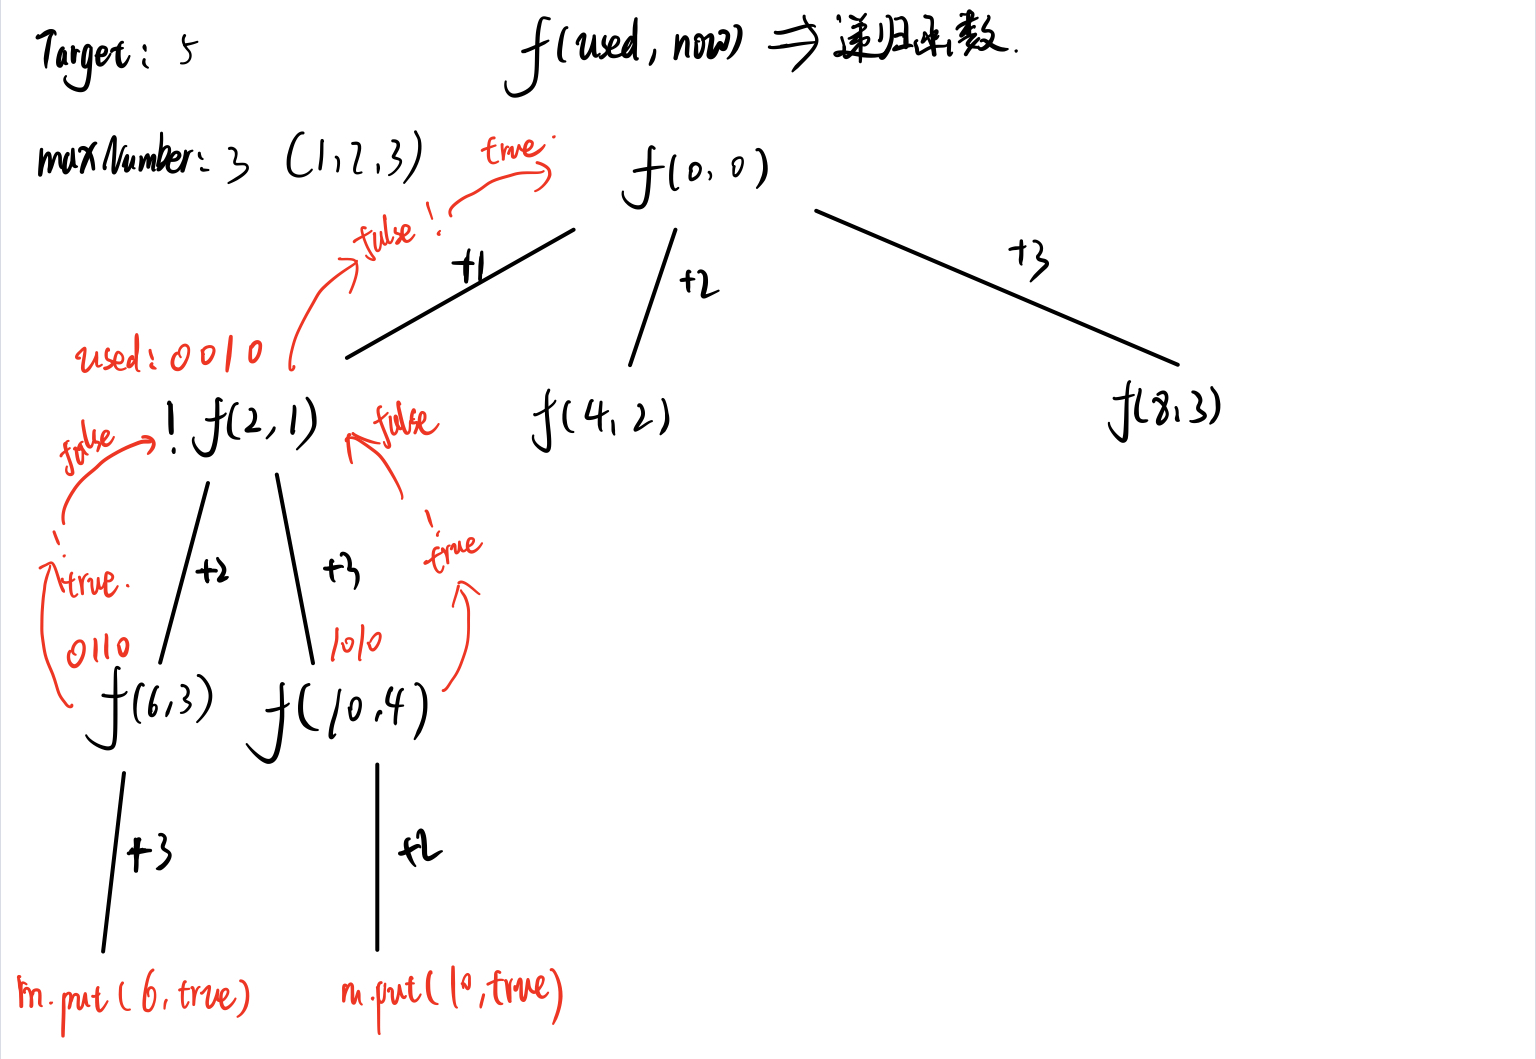 Target: 5
f(used, now) ⇒ 递归函数.
maxNumber: 3 (1,2,3)
true.
f(0,0)
false !
+1
+2
+3
used: 0010
! f(2,1)
false
false
f(4,2)
f(8,3)
!
true.
!
true
+2
+3
0110
1010
f(6,3)
f(10,4)
+3
+2
m.put(6,true)
m.put(10,true)